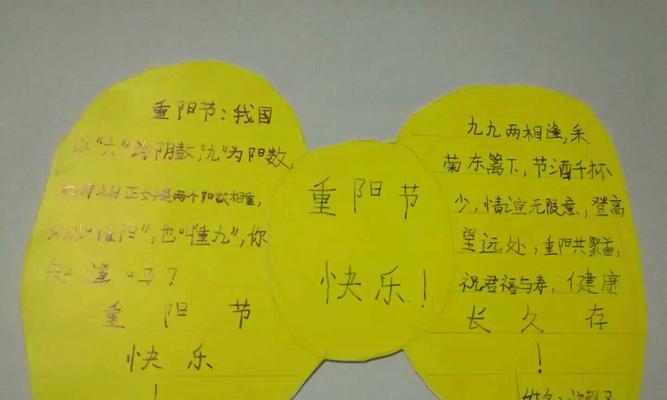 重阳节：我国
以"六"为阴数，"九"为阳数，
九月九日正好是两个阳数相重，
所以叫"重阳"，也叫"重九"，你
知道吗？
重阳节
快乐
！
重阳节
快乐！
九九两相逢，采
菊东篱下，节酒千杯
少，情谊无限意，登高
望远处，重阳共聚首，
祝君禧与寿，健康
长久存
！
姓名：